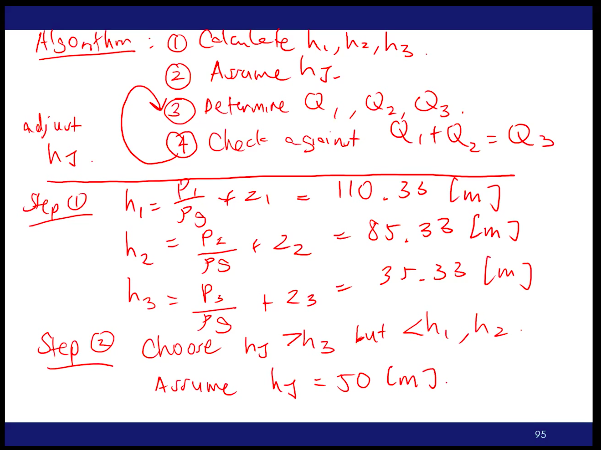 Algorithm : ① Calculate h₁, h₂, h₃.
② Assume hJ.
③ Determine Q₁, Q₂, Q₃.
④ Check against Q₁ + Q₂ = Q₃
adjust
hJ.
Step ① h₁ = P₁/ρg + z₁ = 110.33 [m]
h₂ = P₂/ρg + z₂ = 85.33 [m]
h₃ = P₃/ρg + z₃ = 35.33 [m]
Step ② Choose hJ > h₃ but < h₁, h₂.
Assume hJ = 50 [m].
95